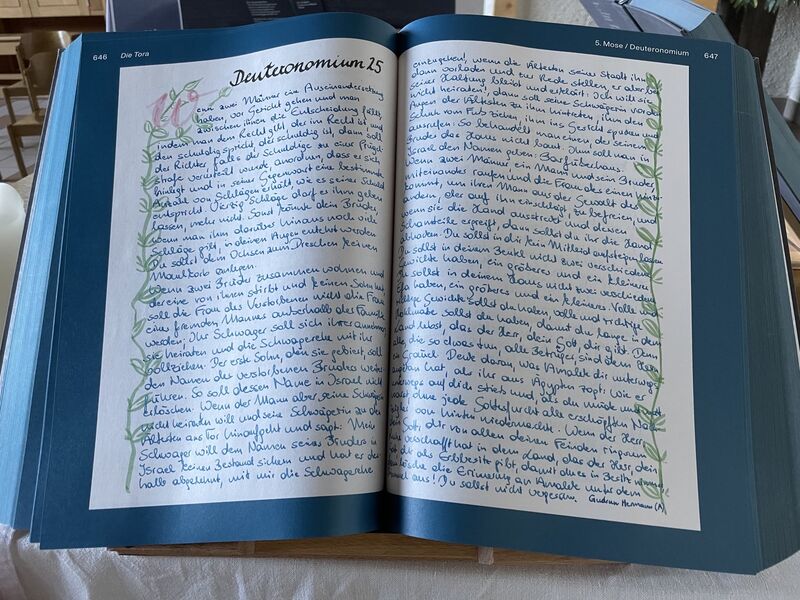 646 Die Tora
Deuteronomium 25
Wenn zwei Männer eine Auseinandersetzung
haben, vor Gericht gehen und man
zwischen ihnen die Entscheidung fällt,
indem man dem Recht gibt, der im Recht ist, und
den schuldig spricht, der schuldig ist, dann soll
der Richter, falls der Schuldige zu einer Prügel-
strafe verurteilt wurde, anordnen, dass er sich
hinlegt und in seiner Gegenwart eine bestimmte
Anzahl von Schlägen erhält, wie es seiner Schuld
entspricht. Vierzig Schläge darf er ihm geben
lassen, mehr nicht. Sonst könnte dein Bruder,
wenn man ihm darüber hinaus noch viele
Schläge gibt, in deinen Augen entehrt werden.
Du sollst dem Ochsen zum Dreschen keinen
Maulkorb anlegen.
Wenn zwei Brüder zusammen wohnen und
der eine von ihnen stirbt und keinen Sohn hat,
soll die Frau des Verstorbenen nicht die Frau
eines fremden Mannes außerhalb der Familie
werden. Ihr Schwager soll sich ihrer annehmen,
sie heiraten und die Schwagerehe mit ihr
vollziehen. Der erste Sohn, den sie gebiert, soll
den Namen des verstorbenen Bruders weiter-
führen. So soll dessen Name in Israel nicht
erlöschen. Wenn der Mann aber seine Schwägerin
nicht heiraten will und seine Schwägerin zu den
Ältesten ans Tor hinaufgeht und sagt: Mein
Schwager will dem Namen seines Bruders in
Israel keinen Bestand sichern und hat es des-
halb abgelehnt, mit mir die Schwagerehe
5. Mose / Deuteronomium 647
einzugehen!, wenn die Ältesten seiner Stadt ihn
dann vorladen und zur Rede stellen, er aber bei
seiner Haltung bleibt und erklärt: Ich will sie
nicht heiraten!, dann soll seine Schwägerin vor den
Augen der Ältesten zu ihm hintreten, ihm den
Schuh vom Fuß ziehen, ihm ins Gesicht spucken und
ausrufen: So behandelt man einen, der seinem
Bruder das Haus nicht baut. Ihm soll man in
Israel den Namen geben: Barfüßerhaus.
Wenn zwei Männer, ein Mann und sein Bruder,
miteinander raufen und die Frau des einen hinzu-
kommt, um ihren Mann aus der Gewalt des
andern, der auf ihn einschlägt, zu befreien, und
wenn sie die Hand ausstreckt und dessen
Schamteile ergreift, dann sollst du ihr die Hand
abhacken. Du sollst in dir kein Mitleid aufsteigen lassen.
Du sollst in deinem Beutel nicht zwei verschiedene
Gewichte haben, ein größeres und ein kleineres.
Du sollst in deinem Haus nicht zwei verschiedene
Efa haben, ein größeres und ein kleineres. Volle und
richtige Gewichte sollst du haben, volle und richtige
Hohlmaße sollst du haben, damit du lange in dem
Land lebst, das der Herr, dein Gott, dir gibt. Denn
alle, die so etwas tun, alle Betrüger, sind dem Herrn
ein Gräuel. Denk daran, was Amalek dir unterwegs
angetan hat, als ihr aus Ägypten zogt: Wie er
unterwegs auf dich stieß und, als du müde und matt
warst, ohne jede Gottesfurcht alle erschöpften Nach-
von hinten niedermachte. Wenn der Herr,
Gott, dir von allen deinen Feinden ringsum
verschafft hat in dem Land, das der Herr, dein
Gott, dir als Erbbesitz gibt, damit du es in Besitz nimmst,
lösche die Erinnerung an Amalek unter dem
Himmel aus! Du sollst nicht vergessen. Gudrun Hermann (A)